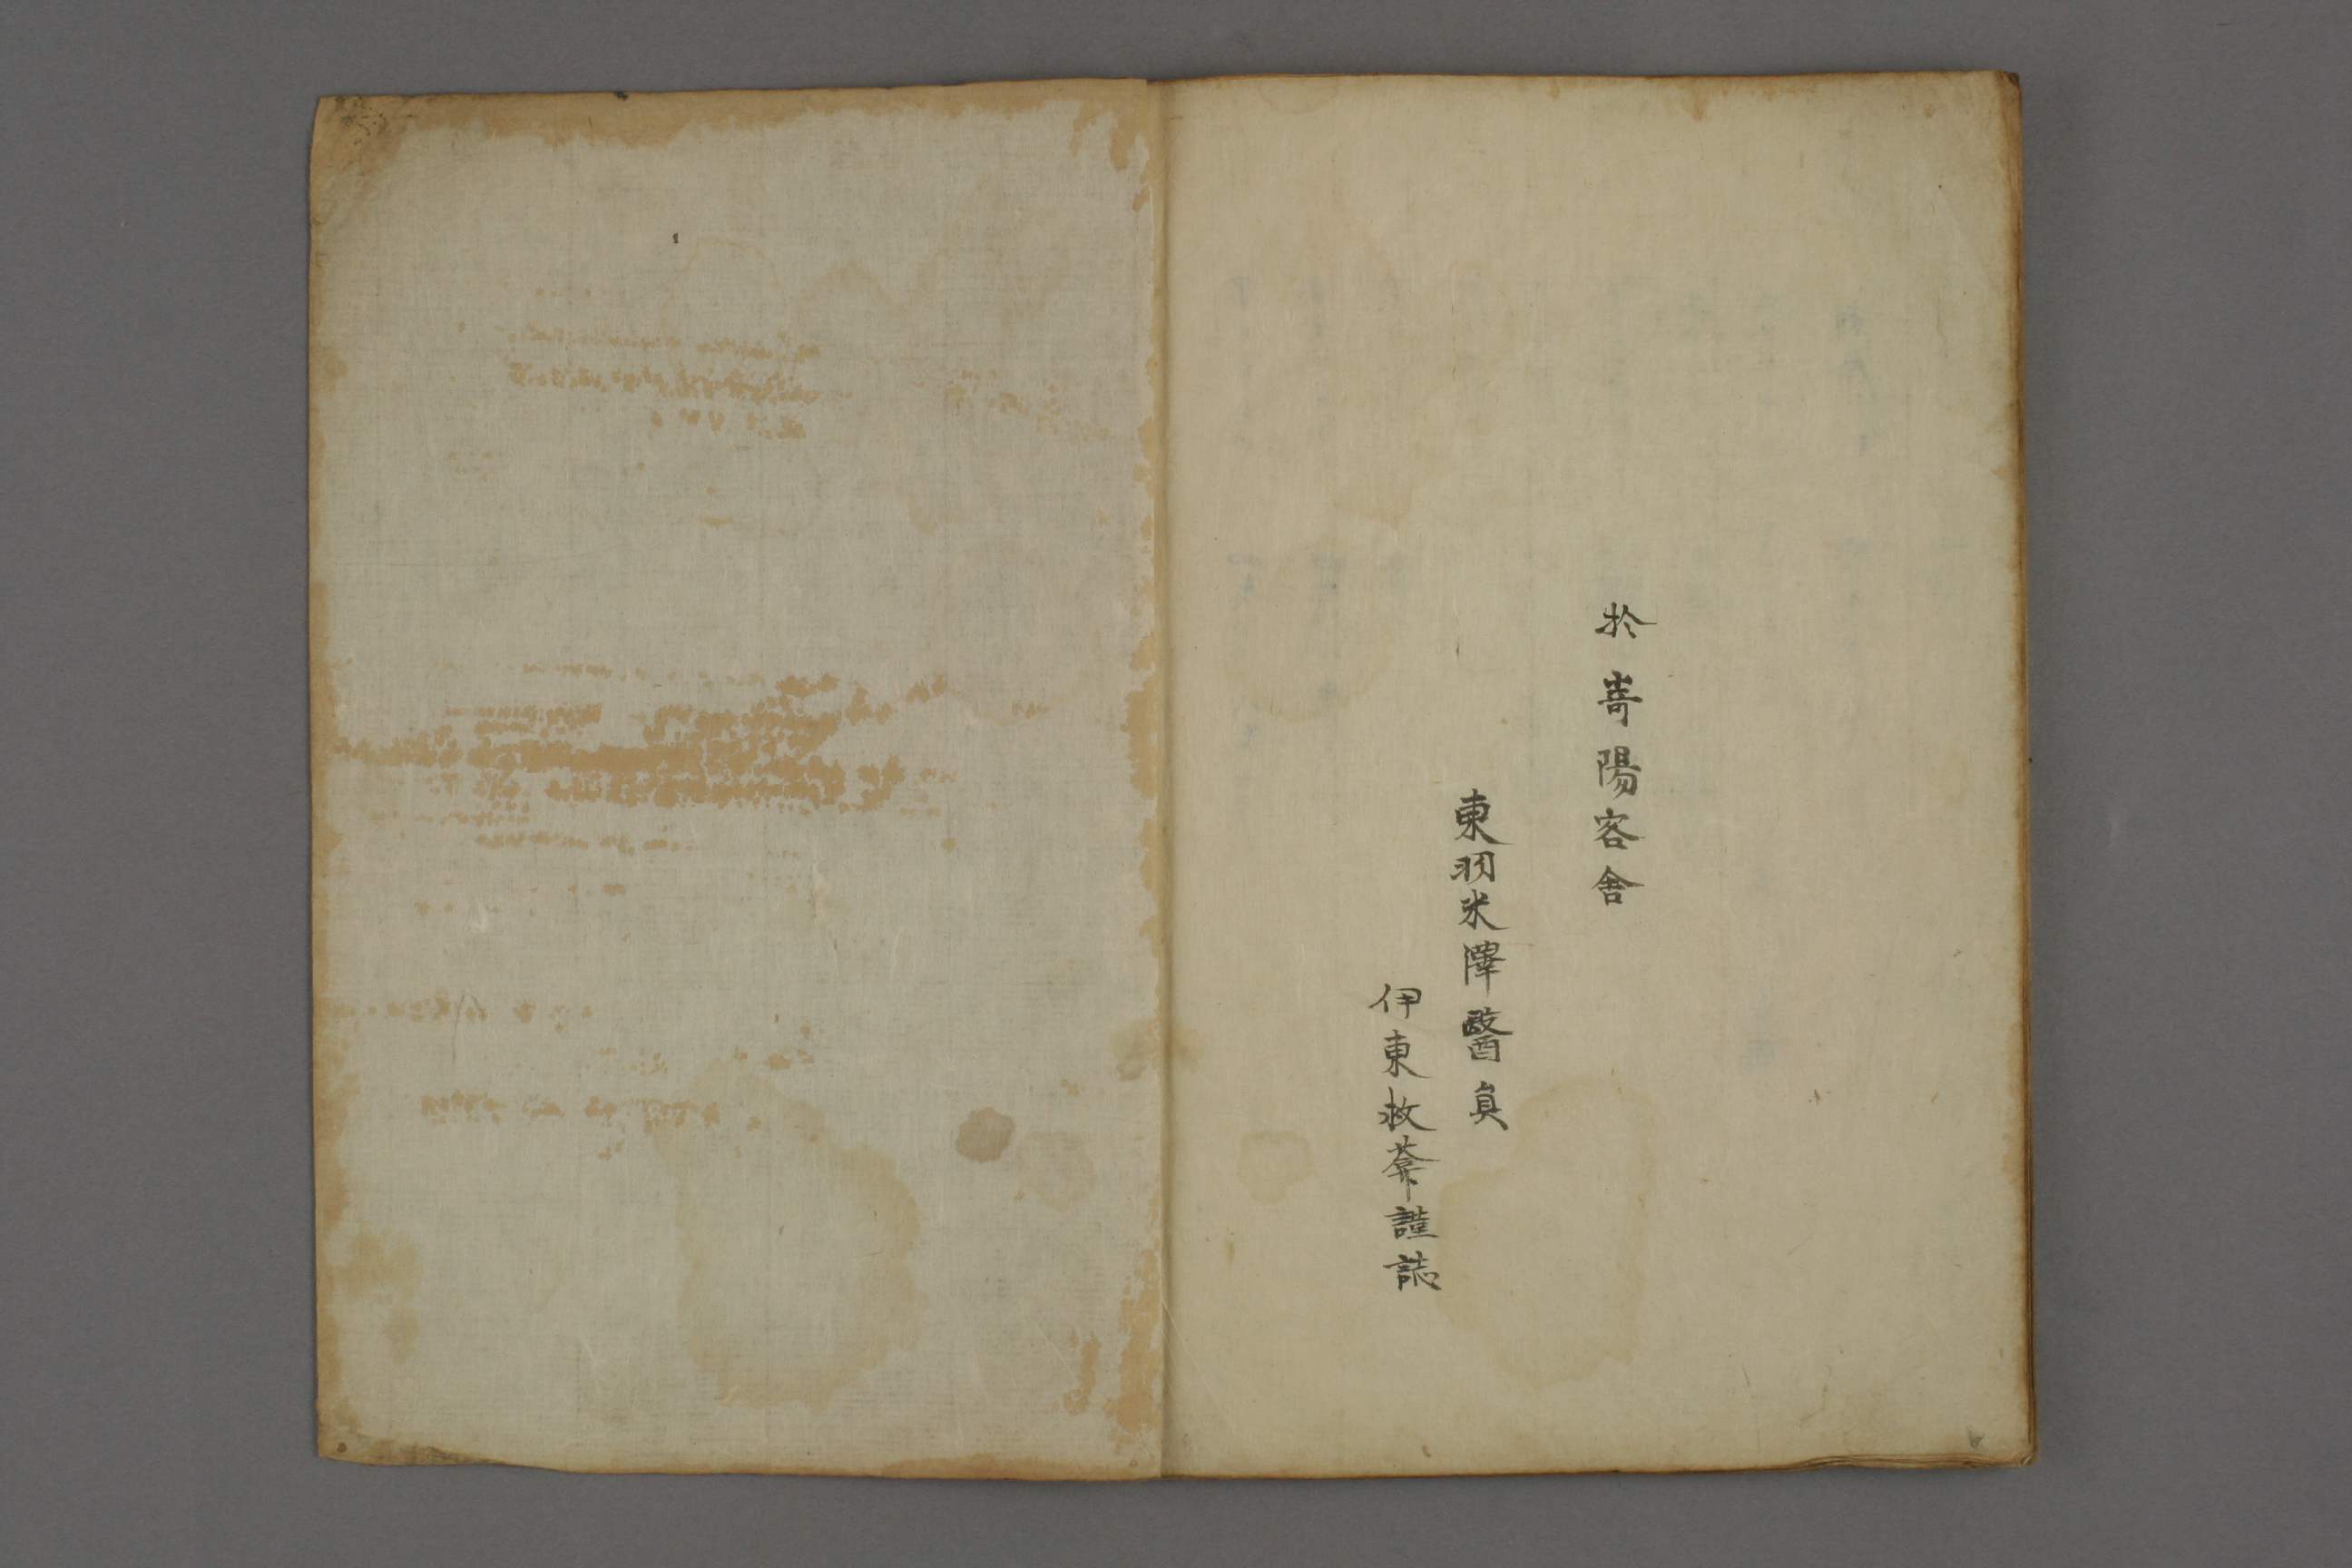 於嵜陽客舎
東羽米澤醫員
伊東救菴謹誌